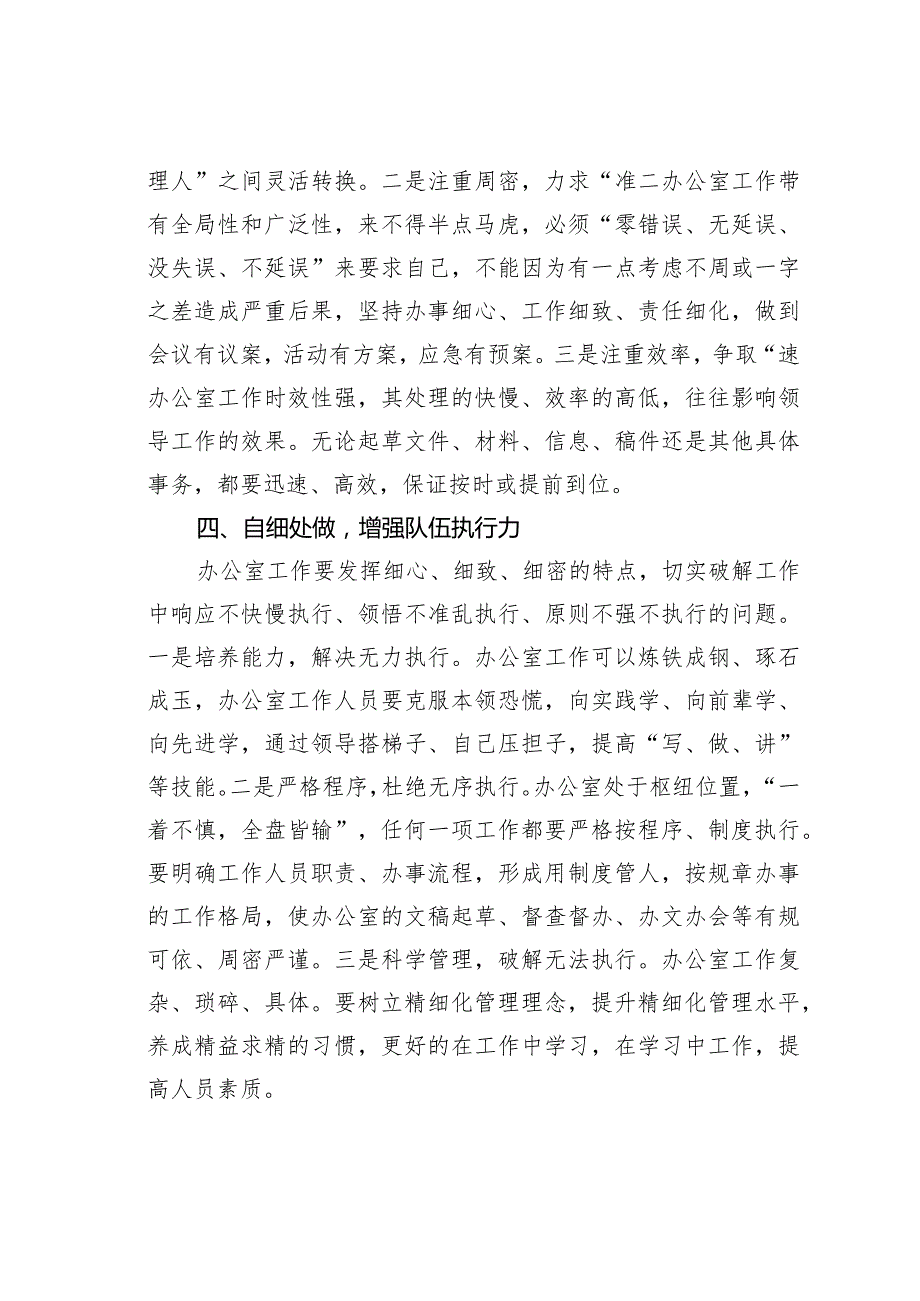 理人”之间灵活转换。二是注重周密，力求“准二办公室工作带
有全局性和广泛性，来不得半点马虎，必须“零错误、无延误、
没失误、不延误”来要求自己，不能因为有一点考虑不周或一字
之差造成严重后果，坚持办事细心、工作细致、责任细化，做到
会议有议案，活动有方案，应急有预案。三是注重效率，争取“速
办公室工作时效性强，其处理的快慢、效率的高低，往往影响领
导工作的效果。无论起草文件、材料、信息、稿件还是其他具体
事务，都要迅速、高效，保证按时或提前到位。
四、自细处做，增强队伍执行力
办公室工作要发挥细心、细致、细密的特点，切实破解工作
中响应不快慢执行、领悟不准乱执行、原则不强不执行的问题。
一是培养能力，解决无力执行。办公室工作可以炼铁成钢、琢石
成玉，办公室工作人员要克服本领恐慌，向实践学、向前辈学、
向先进学，通过领导搭梯子、自己压担子，提高“写、做、讲”
等技能。二是严格程序，杜绝无序执行。办公室处于枢纽位置，“一
着不慎，全盘皆输”，任何一项工作都要严格按程序、制度执行。
要明确工作人员职责、办事流程，形成用制度管人，按规章办事
的工作格局，使办公室的文稿起草、督查督办、办文办会等有规
可依、周密严谨。三是科学管理，破解无法执行。办公室工作复
杂、琐碎、具体。要树立精细化管理理念，提升精细化管理水平，
养成精益求精的习惯，更好的在工作中学习，在学习中工作，提
高人员素质。